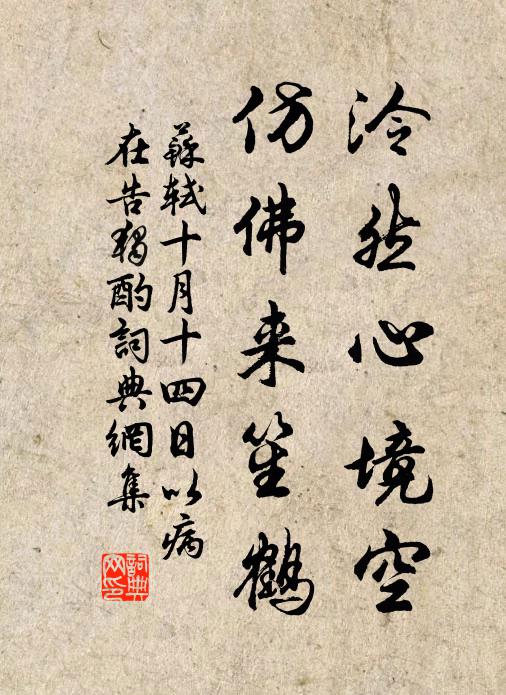 泠然心境空
仿佛来笙鶴
蘇軾十月十四日以病
在告獨酌詞典網集
詞典
网印